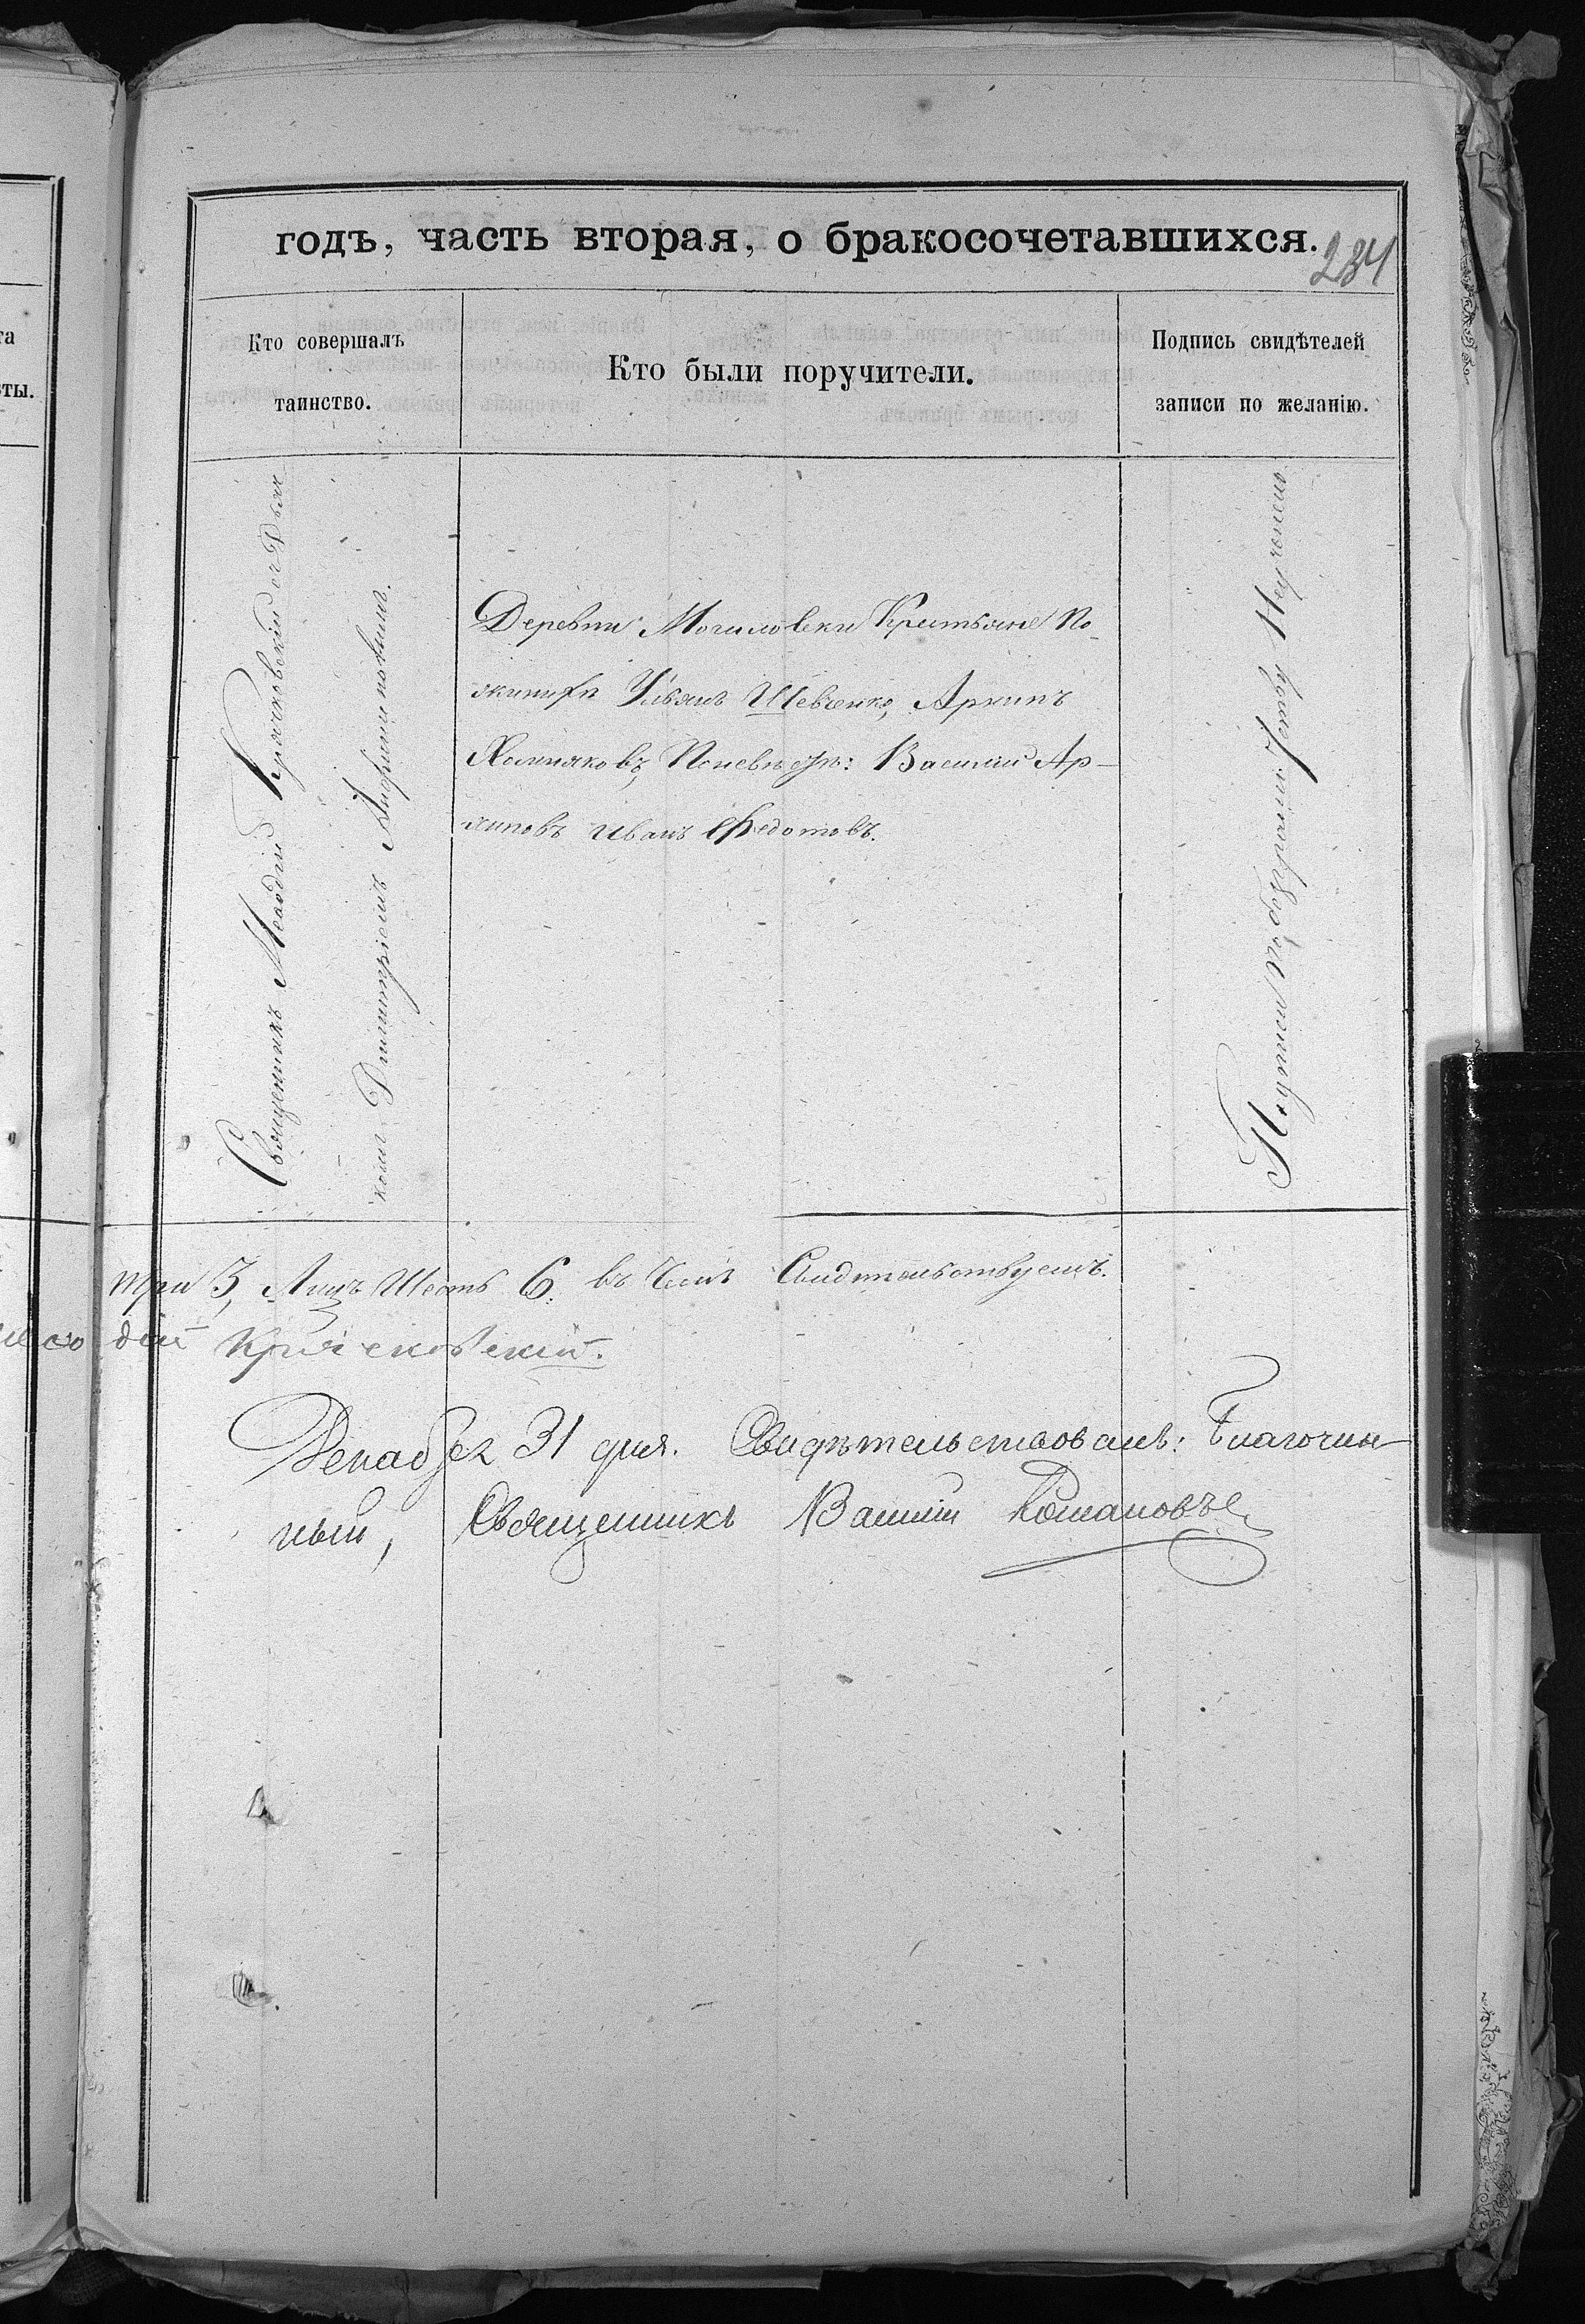 годъ, часть вторая, о бракосочетавшихся.
234
Кто совершалъ
таинство.
Кто были поручители.
Подпись свидѣтелей
записи по желанію.
Священникъ Меѳодій Крячковскій съ Дьяч
комъ Димитріемъ
Деревни Могиловки Крестьяне По
жениху Ульянъ Шевченко, Архипъ
Холиняковъ, По невѣстѣ: Василій Ар-
хиповъ Иванъ Ѳедотовъ.
Подписи
три 3, Лицъ Шесть 6. въ Чемъ Свидѣтельствуемъ.
дій Крячковскій.
Декабря 31 дня. Свидѣтельствовалъ: Благочин-
ный, Священникъ Василій Романовъ
та
сты.